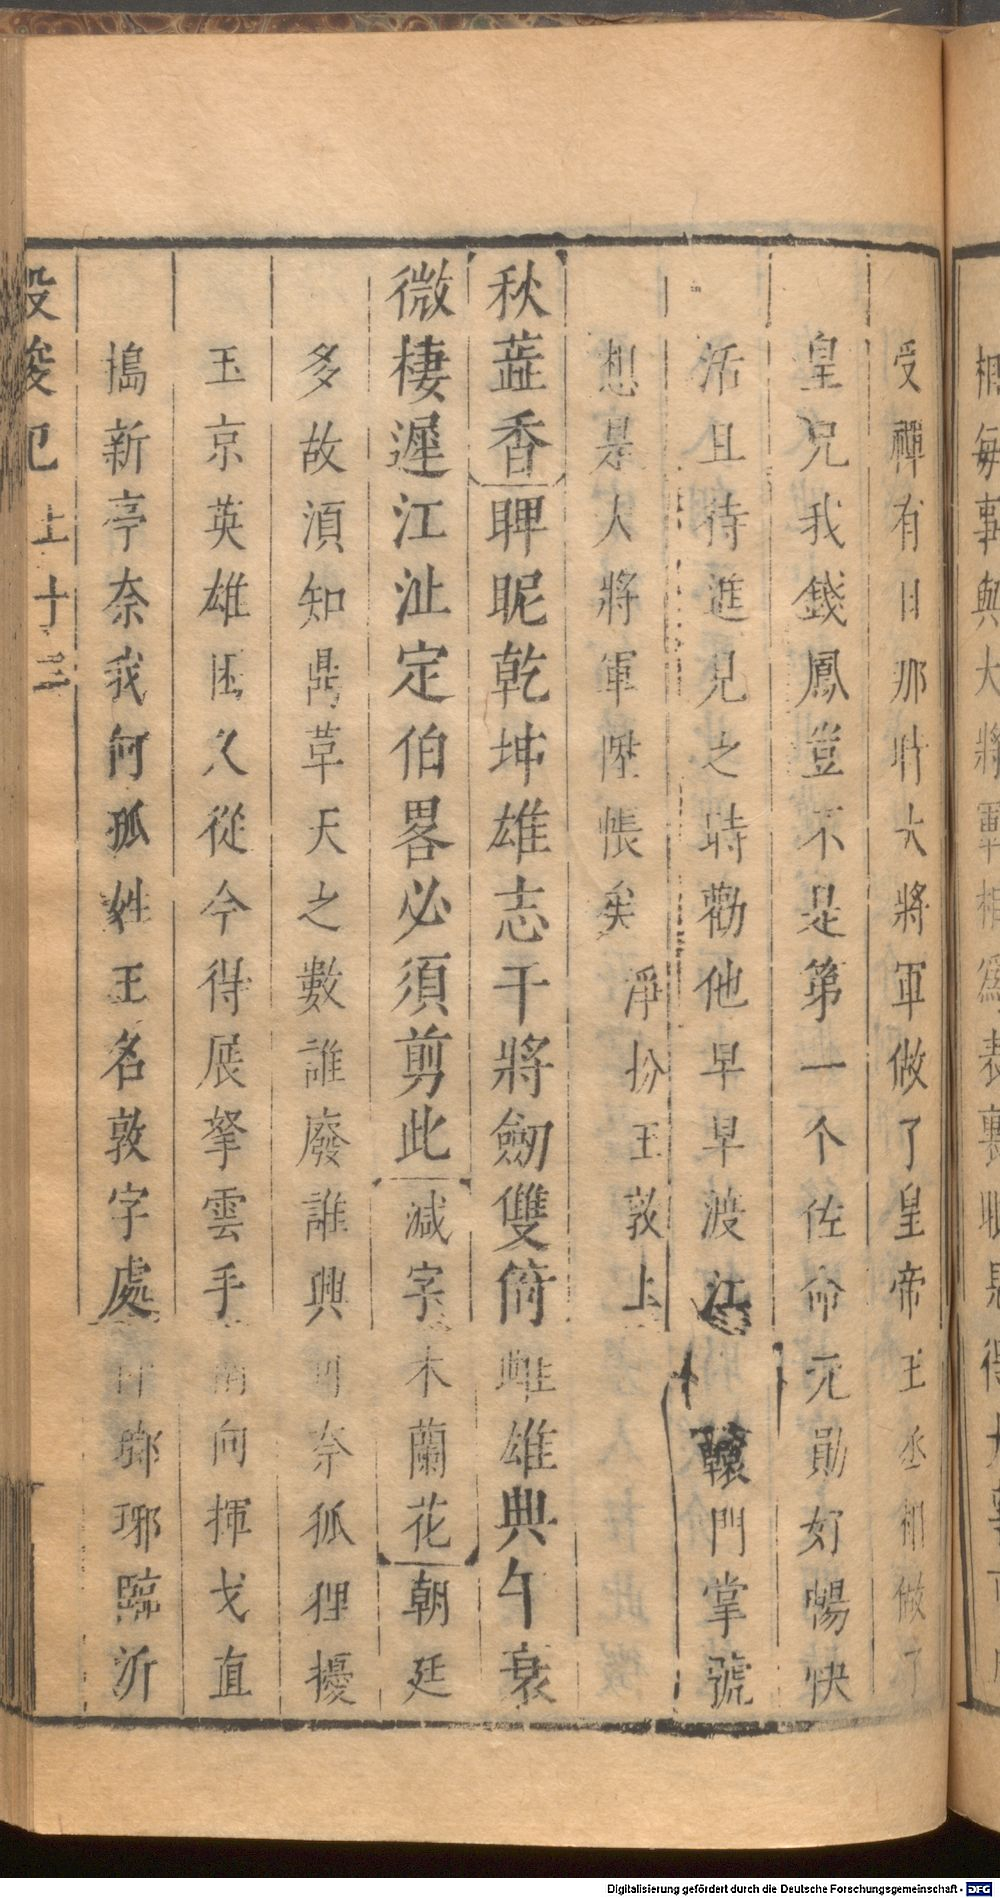 受禪有日那時大將軍做了皇帝王丞相做了
皇兄我錢鳳豈不是第一个佐命元勛好暢快
活且待進見之時勸他早早渡江 轅門掌號
想是大將軍陞帳矣 淨扮王敦上
秋蕋香 睥睨乾坤雄志干將劒雙倚雌雄典午衰
微棲遲江沚定伯畧必須剪此 減字木蘭花 朝廷
多故須知鼎革天之數誰廢誰興 奈狐狸擾
玉京英雄困久從今得展拏雲手南向揮戈直
搗新亭奈我何孤姓王名敦字處 瑯琊臨沂
投梭记 上 十三
Digitalisierung gefördert durch die Deutsche Forschungsgemeinschaft - DFG